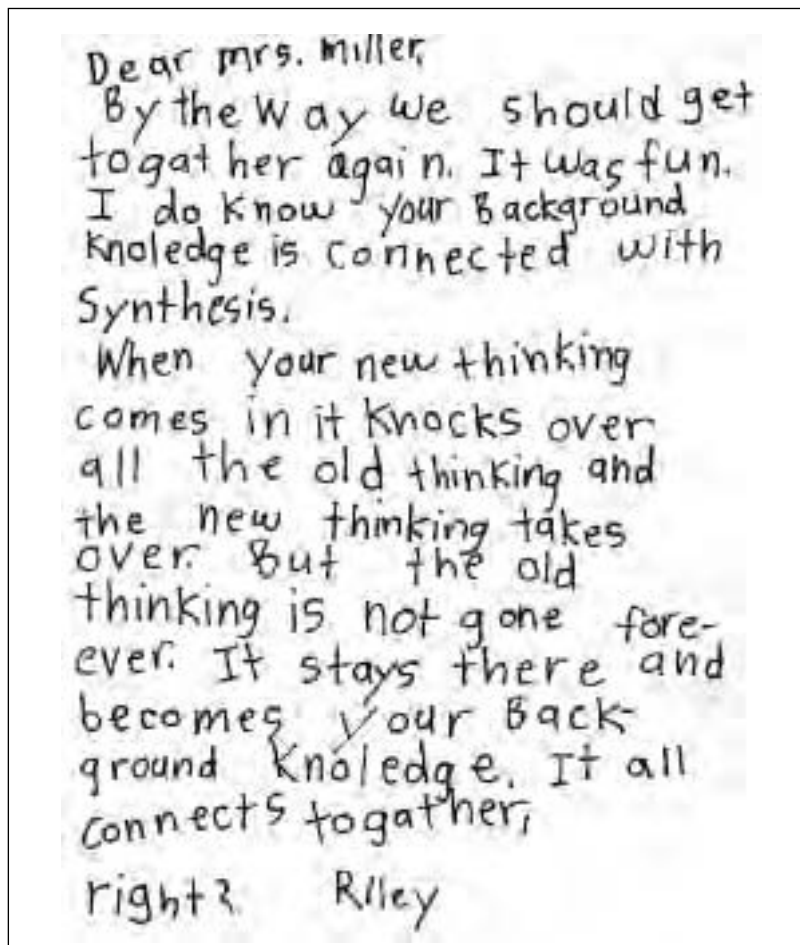 Dear mrs. Miller,
By the Way we should get
togather again. It was fun.
I do know your Background
Knoledge is connected with
Synthesis.
When your new thinking
comes in it Knocks over
all the old thinking and
the new thinking takes
over. But the old
thinking is not gone fore-
ever. It stays there and
becomes your Back-
ground Knoledge. It all
connects togather,
right? Riley